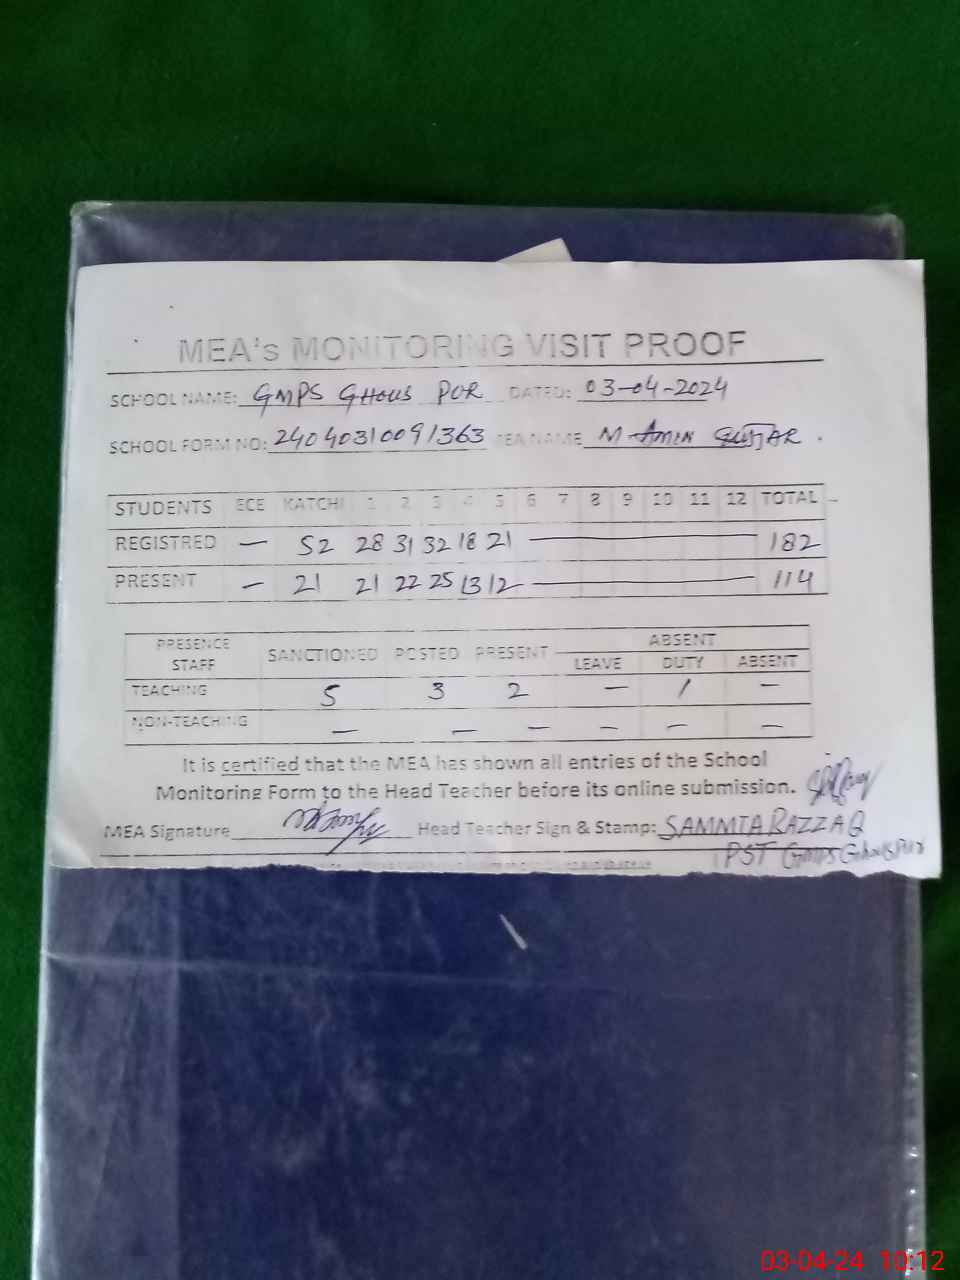 MEA's MONITORING VISIT PROOF
SCHOOL NAME: GMPS GHOUS PUR DATED: 03-04-2024
SCHOOL FORM NO: 24040310091363 MEA NAME M AMIN GUJJAR.
STUDENTS ECE KATCHI 1 2 3 4 5 6 7 8 9 10 11 12 TOTAL
REGISTRED — 52 28 31 32 18 21 — 182
PRESENT — 21 21 22 25 13 12 — 114
PRESENCE STAFF SANCTIONED POSTED PRESENT ABSENT
LEAVE DUTY ABSENT
TEACHING 5 3 2 — 1 —
NON-TEACHING — — — — — —
It is certified that the MEA has shown all entries of the School
Monitoring Form to the Head Teacher before its online submission.
MEA Signature Head Teacher Sign & Stamp: SAMMIA RAZZAQ
PST GMPS Ghous Pur
03-04-24 10:12